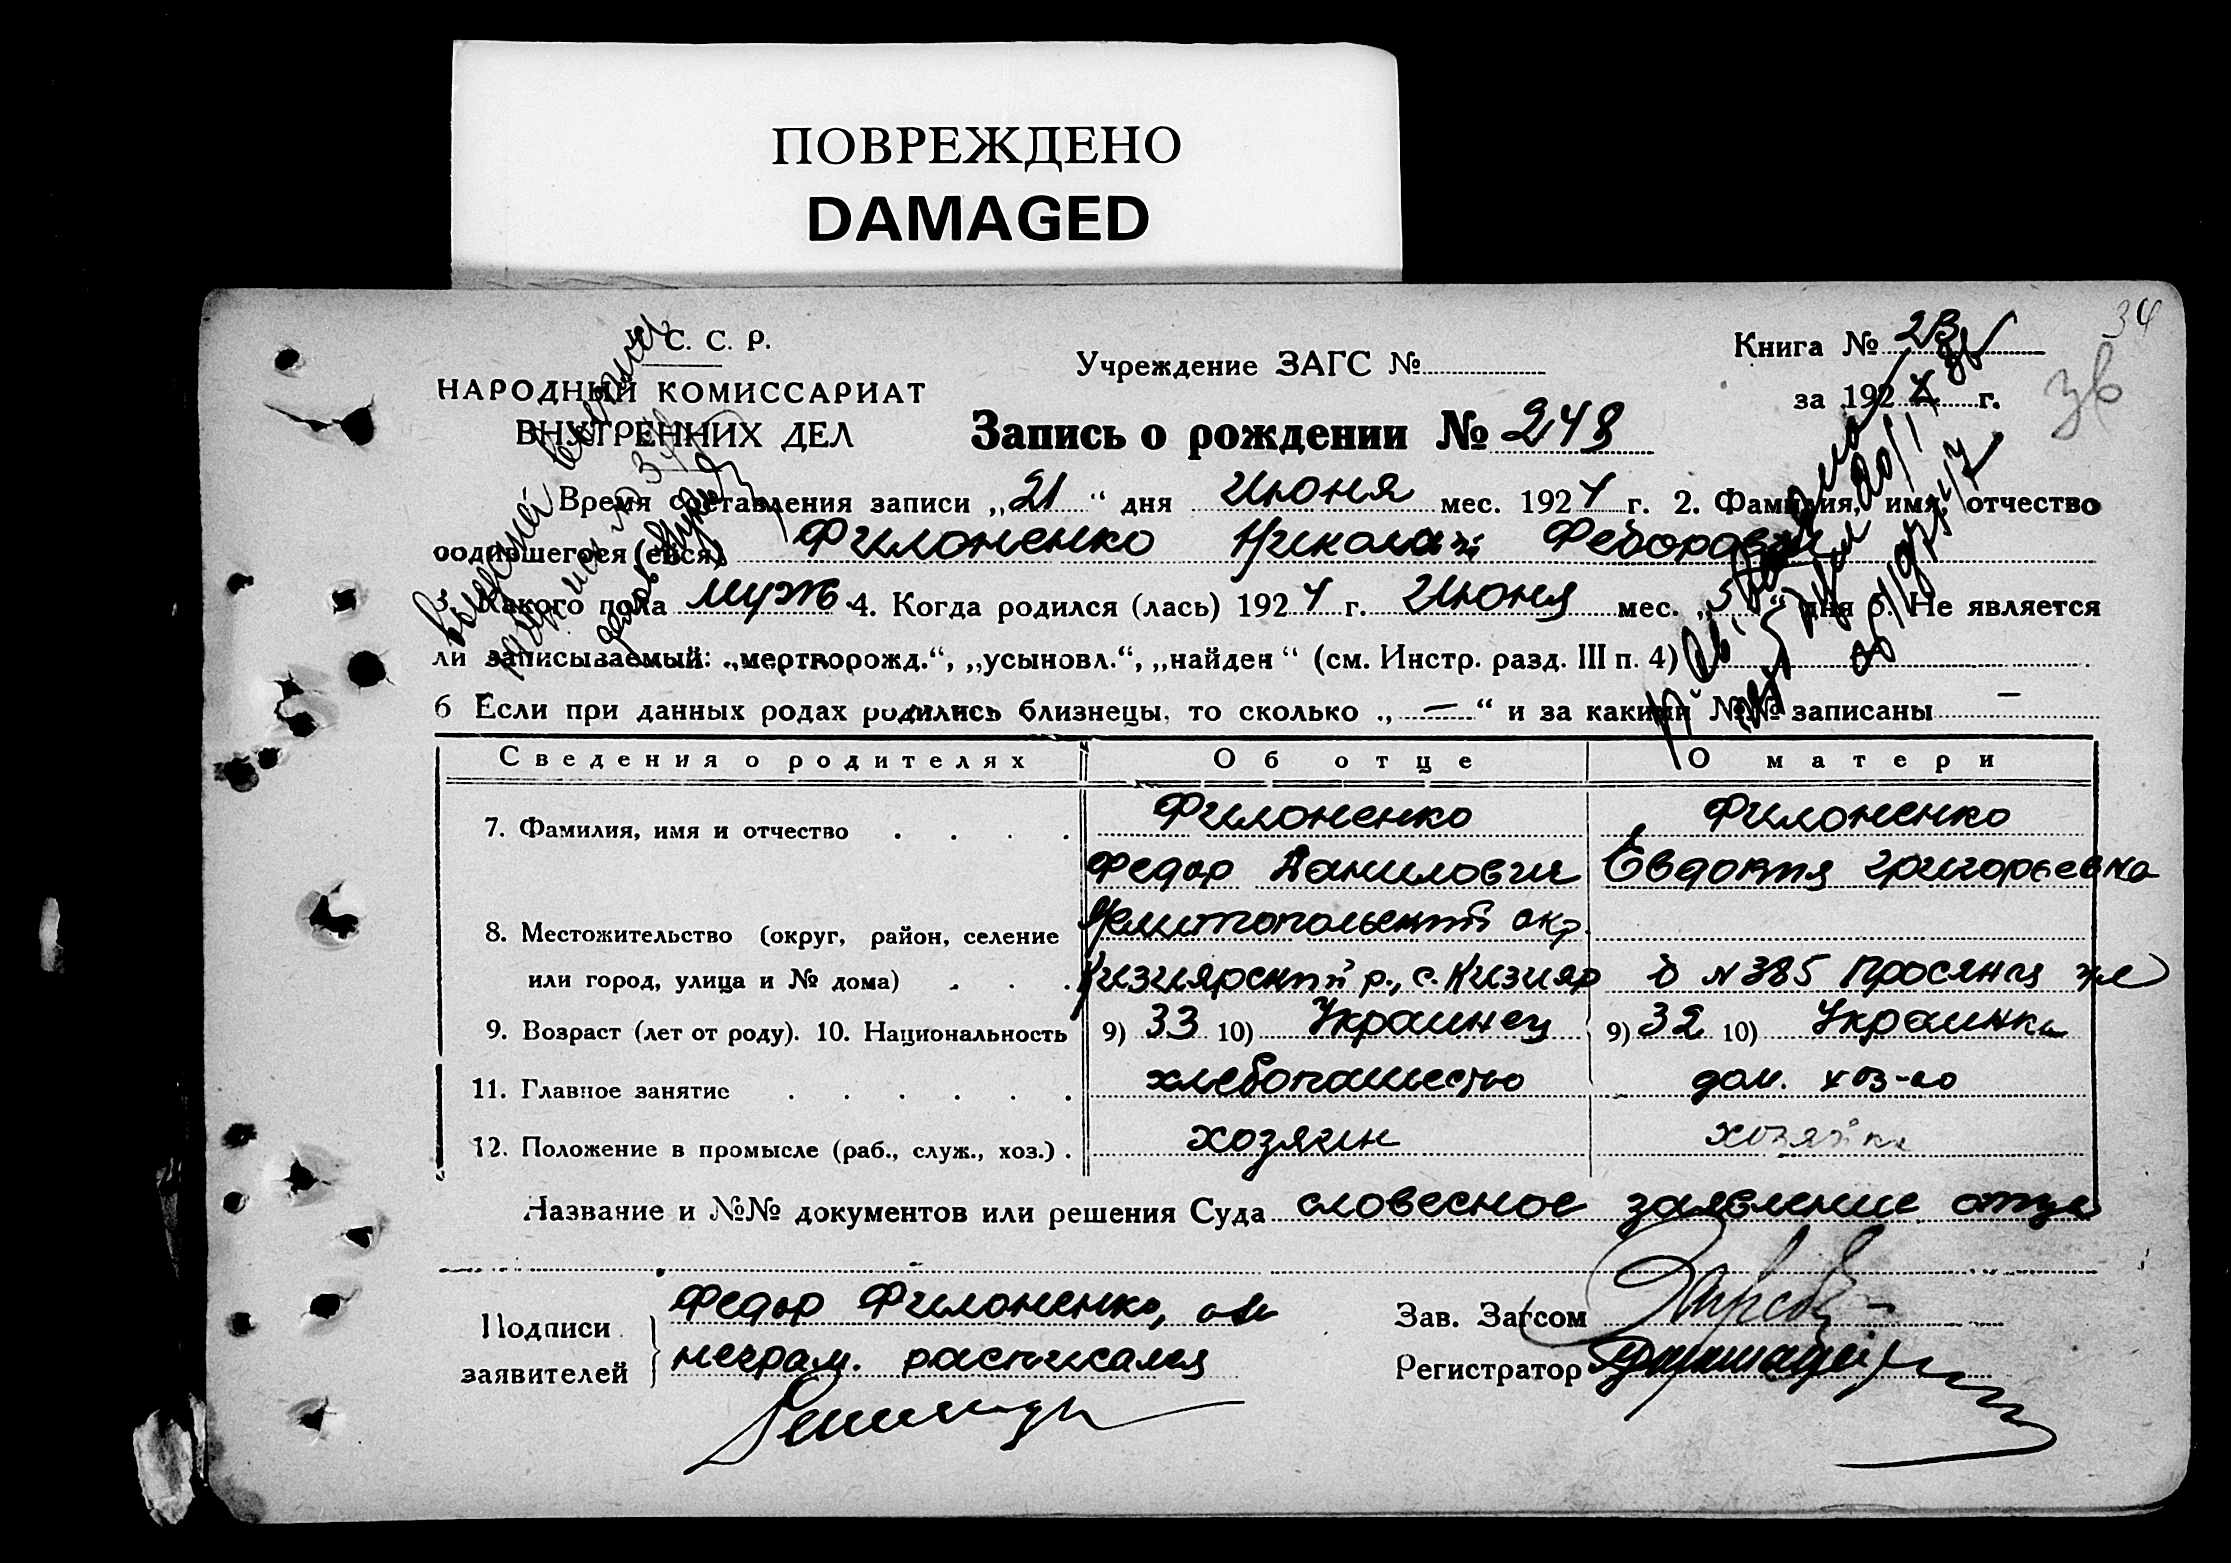 ПОВРЕЖДЕНО
DAMAGED
34
С. С. Р.
Книга № 23
зв
НАРОДНЫЙ КОМИССАРИАТ
ВНУТРЕННИХ ДЕЛ
Учреждение ЗАГС №
за 192 г.
Запись о рождении № 248
Время составления записи „21“ дня Июня мес. 1924 г. 2. Фамилия, имя, отчество
родившегося (ейся) Филоненко Николай Федорович
3. Какого пола муж. 4. Когда родился (лась) 1924 г. Июня мес. „5“ дня 5. Не является
ли записываемый: „мертворожд.“, „усыновл.“, „найден“ (см. Инстр. разд. III п. 4)
6 Если при данных родах родились близнецы, то сколько „—“ и за какими №№ записаны —
Сведения о родителях Об отце О матери
7. Фамилия, имя и отчество Филоненко Филоненко
Федор Данилович Евдокия Григорьевна
8. Местожительство (округ, район, селение Мелитопольский окр.
или город, улица и № дома) Кизиярский р., с. Кизияр д №385
9. Возраст (лет от роду). 10. Национальность 9) 33 10) Украинец 9) 32 10) Украинка
11. Главное занятие хлебопашество дом. хоз-во
12. Положение в промысле (раб., служ., хоз.) хозяин хозяйка
Название и №№ документов или решения Суда словесное заявление отца
Подписи заявителей Федор Филоненко,
неграм. расписался
Зав. Загсом
Регистратор